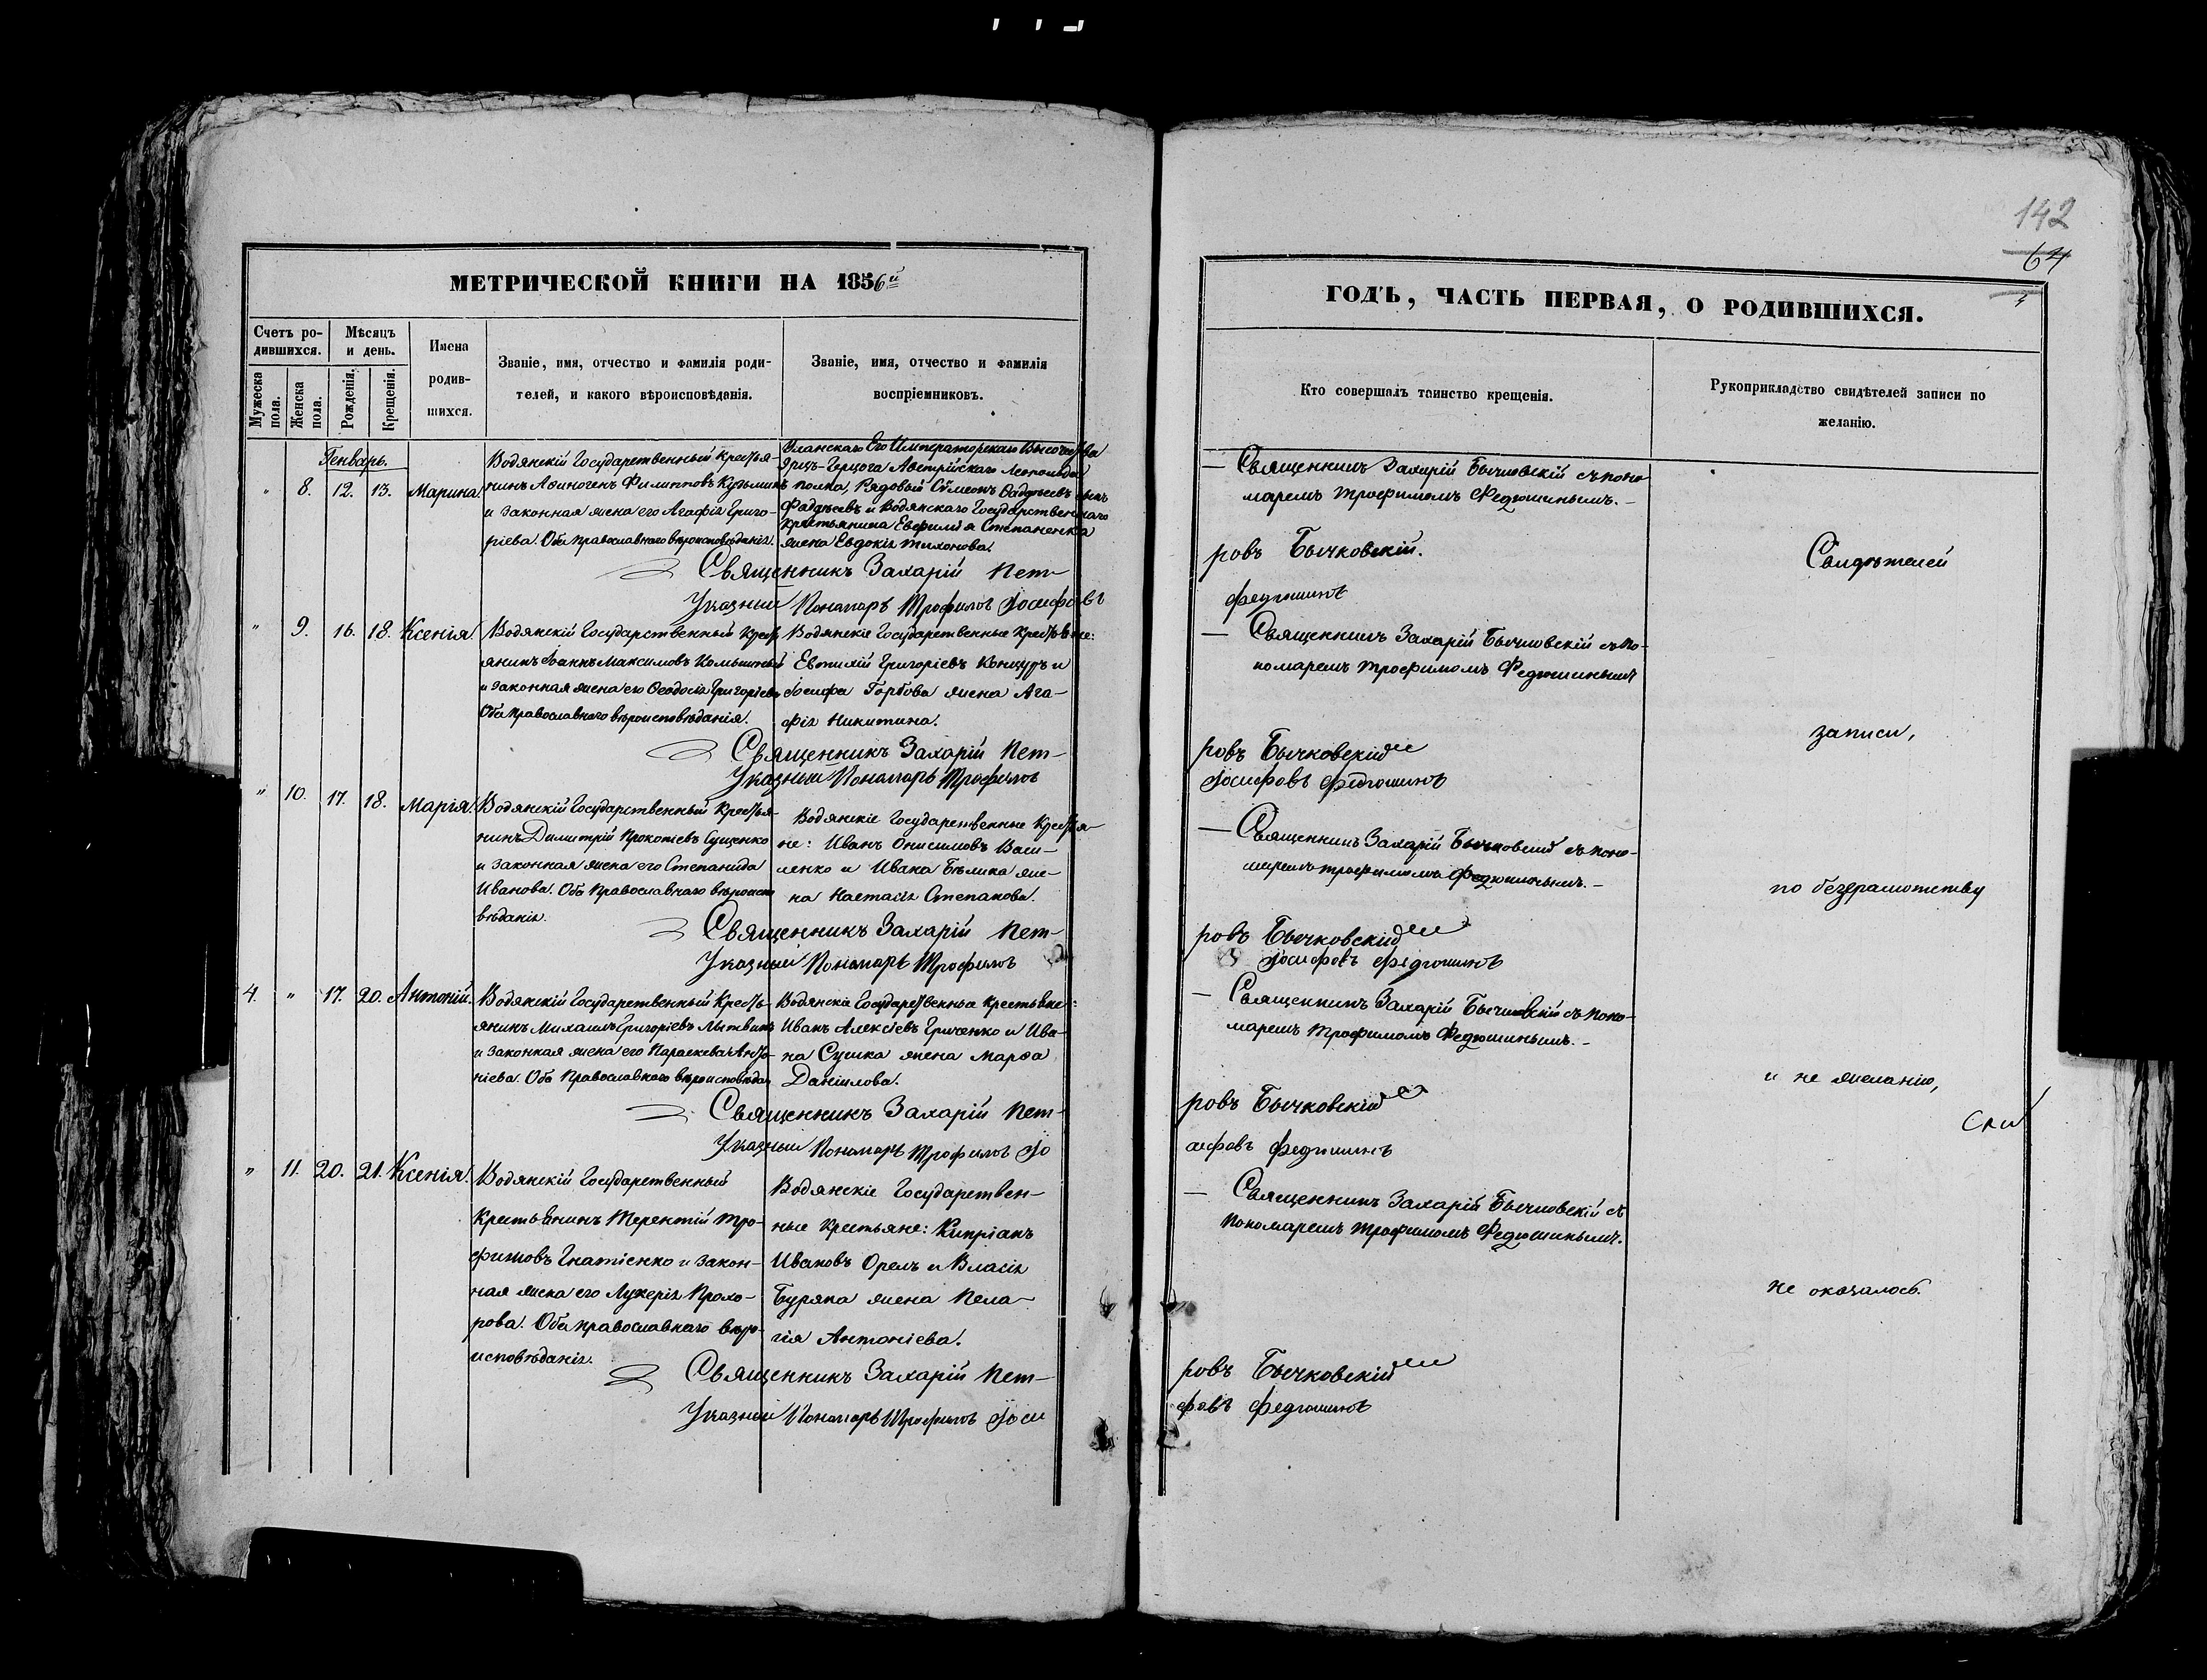 142
64
МЕТРИЧЕСКОЙ КНИГИ НА 1856й
ГОДЪ, ЧАСТЬ ПЕРВАЯ, О РОДИВШИХСЯ.
Счетъ ро-
дившихся.
Мужеска
пола.
Женска
пола.
Мѣсяцъ
и день.
Рожденія.
Крещенія.
Имена
родив-
шихся.
Званіе, имя, отчество и фамилія роди-
телей, и какого вѣроисповѣданія.
Званіе, имя, отчество и фамилія
воспріемниковъ.
Кто совершалъ таинство крещенія.
Рукоприкладство свидѣтелей записи по
желанію.
Генварь.
" 8. 12. 13. Марина.
Водянскій Государственный Крестья-
нинъ Аѳиногенъ Филипповъ Кузьминъ
и законная жена его Агафія Григо-
ріева. Оба православнаго вѣроисповѣданія.
Уланскаго Его Императорскаго Высочества
Эрцъ-Герцога Австрійскаго Леопольда
полка, Рядовый Сѵмеонъ Ѳадѣевъ сынъ
Фадѣевъ и Водянскаго Государственнаго
крестьянина Евфимія Степаненка
жена Евдокія Тихонова.
— Священникъ Захарій Бычковскій съ поно-
маремъ Трофимомъ Федюшинымъ.—
Священникъ Захарій Пет-
ровъ Бычковскій.
Указный Пономарь Трофимъ Іосифовъ
Федюшинъ
Свидѣтелей
" 9. 16. 18. Ксенія.
Водянскій Государственный Кресть
янинъ Іоаннъ Максимовъ
и законная жена его Ѳеодосія Григоріева
Оба православнаго вѣроисповѣданія.
Водянскіе Государственные Крестьяне:
Евтихій Григоріевъ Концуръ и
Іосифа Горбова жена Ага-
фія Никитина.
— Священникъ Захарій Бычковскій съ по-
номаремъ Трофимомъ Федюшинымъ
Священникъ Захарій Пет-
ровъ Бычковскій
Указный Пономарь Трофимъ
Іосифовъ Федюшинъ
записи,
" 10. 17. 18. Марія.
Водянскій Государственный Крестья-
нинъ Димитрій Прокопіевъ Сущенко
и законная жена его Степанида
Иванова. Оба Православнаго вѣроиспо
вѣданія.
Водянскіе Государственные Крестья-
не: Иванъ Онисимовъ Васи-
ленко и Ивана Бѣлика же-
на Настасія Степанова.
— Священникъ Захарій Бычковскій съ поно-
маремъ Трофимомъ Федюшинымъ.—
Священникъ Захарій Пет-
ровъ Бычковскій
Указный Пономарь Трофимъ
Іосифовъ Федюшинъ
по безграмотству
4. " 17. 20. Антоній.
Водянскій Государственный Кресть-
янинъ Михаилъ Григоріевъ Литвинъ
и законная жена его Параскева Анто-
ніева. Оба Православнаго вѣроисповѣдан
Водянскіе Государственные Крестьяне:
Иванъ Алексіевъ Гриченко и Ива-
на Сушка жена Марѳа
Даніилова.
— Священникъ Захарій Бычковскій съ поно-
маремъ Трофимомъ Федюшинымъ.—
Священникъ Захарій Пет-
ровъ Бычковскій
Указный Пономарь Трофимъ Іо
сифовъ Федюшинъ
и не желанію,
" 11. 20. 21. Ксенія.
Водянскій Государственный
Крестьянинъ Терентій Тро-
фимовъ Гнатіенко и закон-
ная жена его Лукерія Прохо-
рова. Оба православнаго вѣро-
исповѣданія.
Водянскіе Государствен-
ные Крестьяне: Кипріанъ
Ивановъ Орелъ и Власія
Буряка жена Пела-
гія Антоніева.
— Священникъ Захарій Бычковскій съ
Пономаремъ Трофимомъ Федюшинымъ.
не оказалось.
Священникъ Захарій Пет-
ровъ Бычковскій
Указный Пономарь Трофимъ Іоси
фовъ Федюшинъ